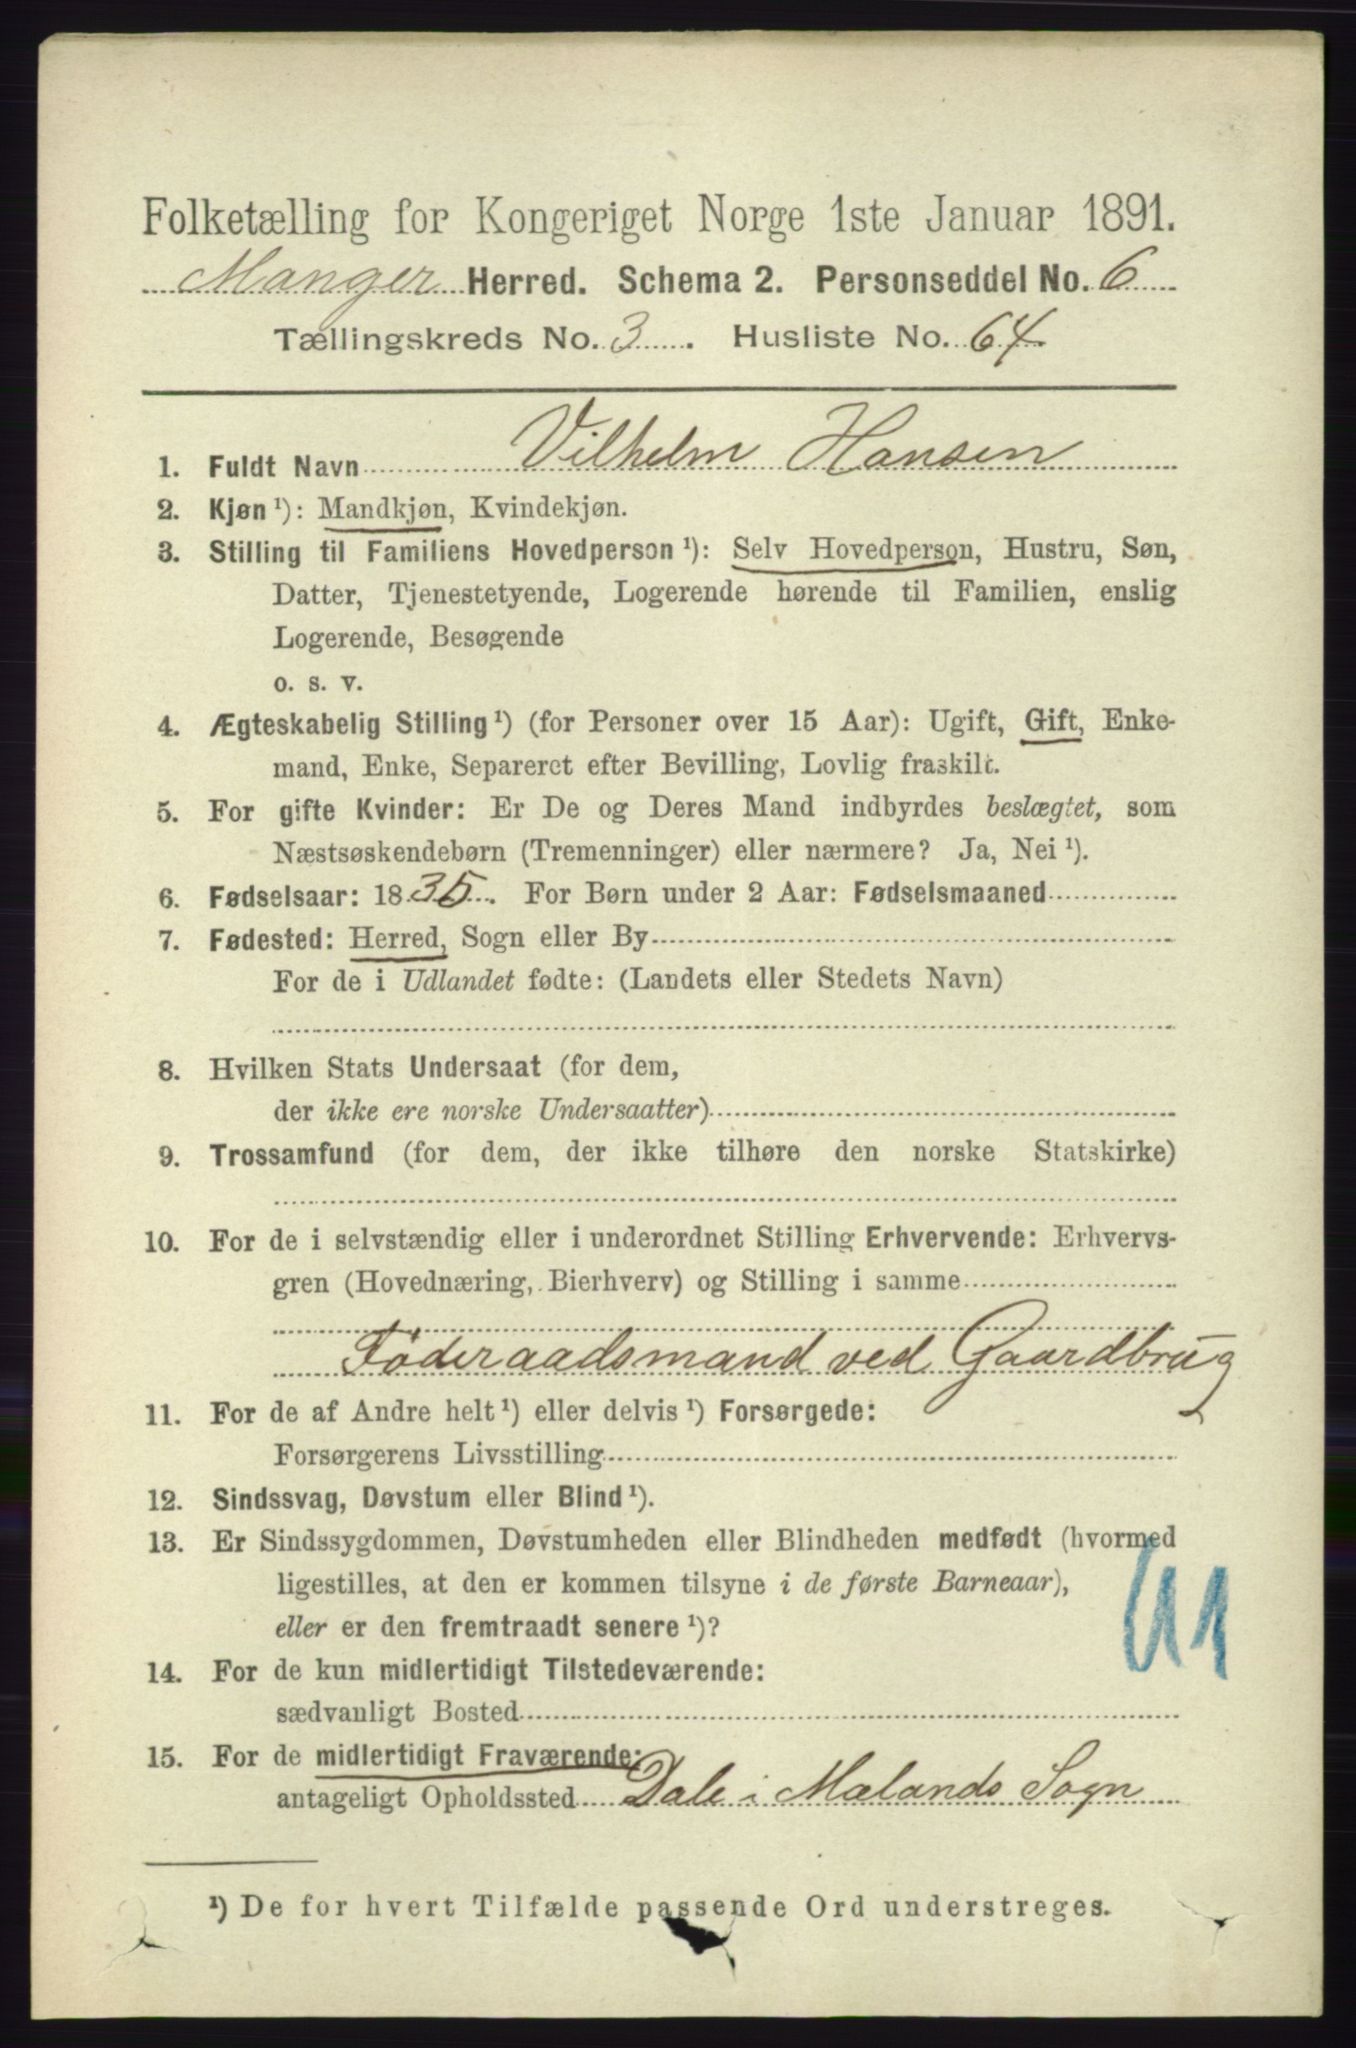 Folketælling for Kongeriget Norge 1ste Januar 1891.
Manger Herred. Schema 2. Personseddel No. 6
Tællingskreds No. 3. Husliste No. 64.
1. Fuldt Navn Vilhelm Hansen
2. Kjøn ¹): Mandkjøn, Kvindekjøn.
3. Stilling til Familiens Hovedperson ¹): Selv Hovedperson, Hustru, Søn,
Datter, Tjenestetyende, Logerende hørende til Familien, enslig
Logerende, Besøgende
o. s. v.
4. Ægteskabelig Stilling ¹) (for Personer over 15 Aar): Ugift, Gift, Enke-
mand, Enke, Separeret efter Bevilling, Lovlig fraskilt.
5. For gifte Kvinder: Er De og Deres Mand indbyrdes beslægtet, som
Næstsøskendebørn (Tremenninger) eller nærmere? Ja, Nei ¹).
6. Fødselsaar: 1835. For Børn under 2 Aar: Fødselsmaaned
7. Fødested: Herred, Sogn eller By
For de i Udlandet fødte: (Landets eller Stedets Navn)
8. Hvilken Stats Undersaat (for dem,
der ikke ere norske Undersaatter)
9. Trossamfund (for dem, der ikke tilhøre den norske Statskirke)
10. For de i selvstændig eller i underordnet Stilling Erhvervende: Erhvervs-
gren (Hovednæring, Bierhverv) og Stilling i samme
Føderaadsmand ved Gaardbrug
11. For de af Andre helt ¹) eller delvis ¹) Forsørgede:
Forsørgerens Livsstilling
12. Sindssvag, Døvstum eller Blind ¹).
13. Er Sindssygdommen, Døvstumheden eller Blindheden medfødt (hvormed
ligestilles, at den er kommen tilsyne i de første Barneaar),
eller er den fremtraadt senere ¹)?
14. For de kun midlertidigt Tilstedeværende:
sædvanligt Bosted
15. For de midlertidigt Fraværende:
antageligt Opholdssted Dale i Mælands Sogn
¹) De for hvert Tilfælde passende Ord understreges.